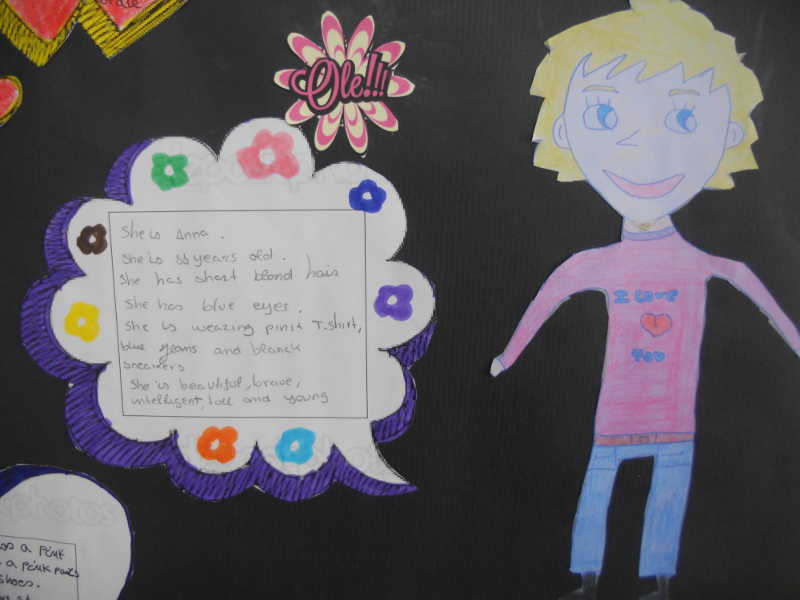 Ole!!!
She is Anna.
She is 35 years old.
She has short blond hair
She has blue eyes.
She is wearing pink T-shirt,
blue jeans and blanck
sneakers
She is beautiful, brave,
intelligent, tall and young
I Love
You
as a Pink
a pink pants
shoes.